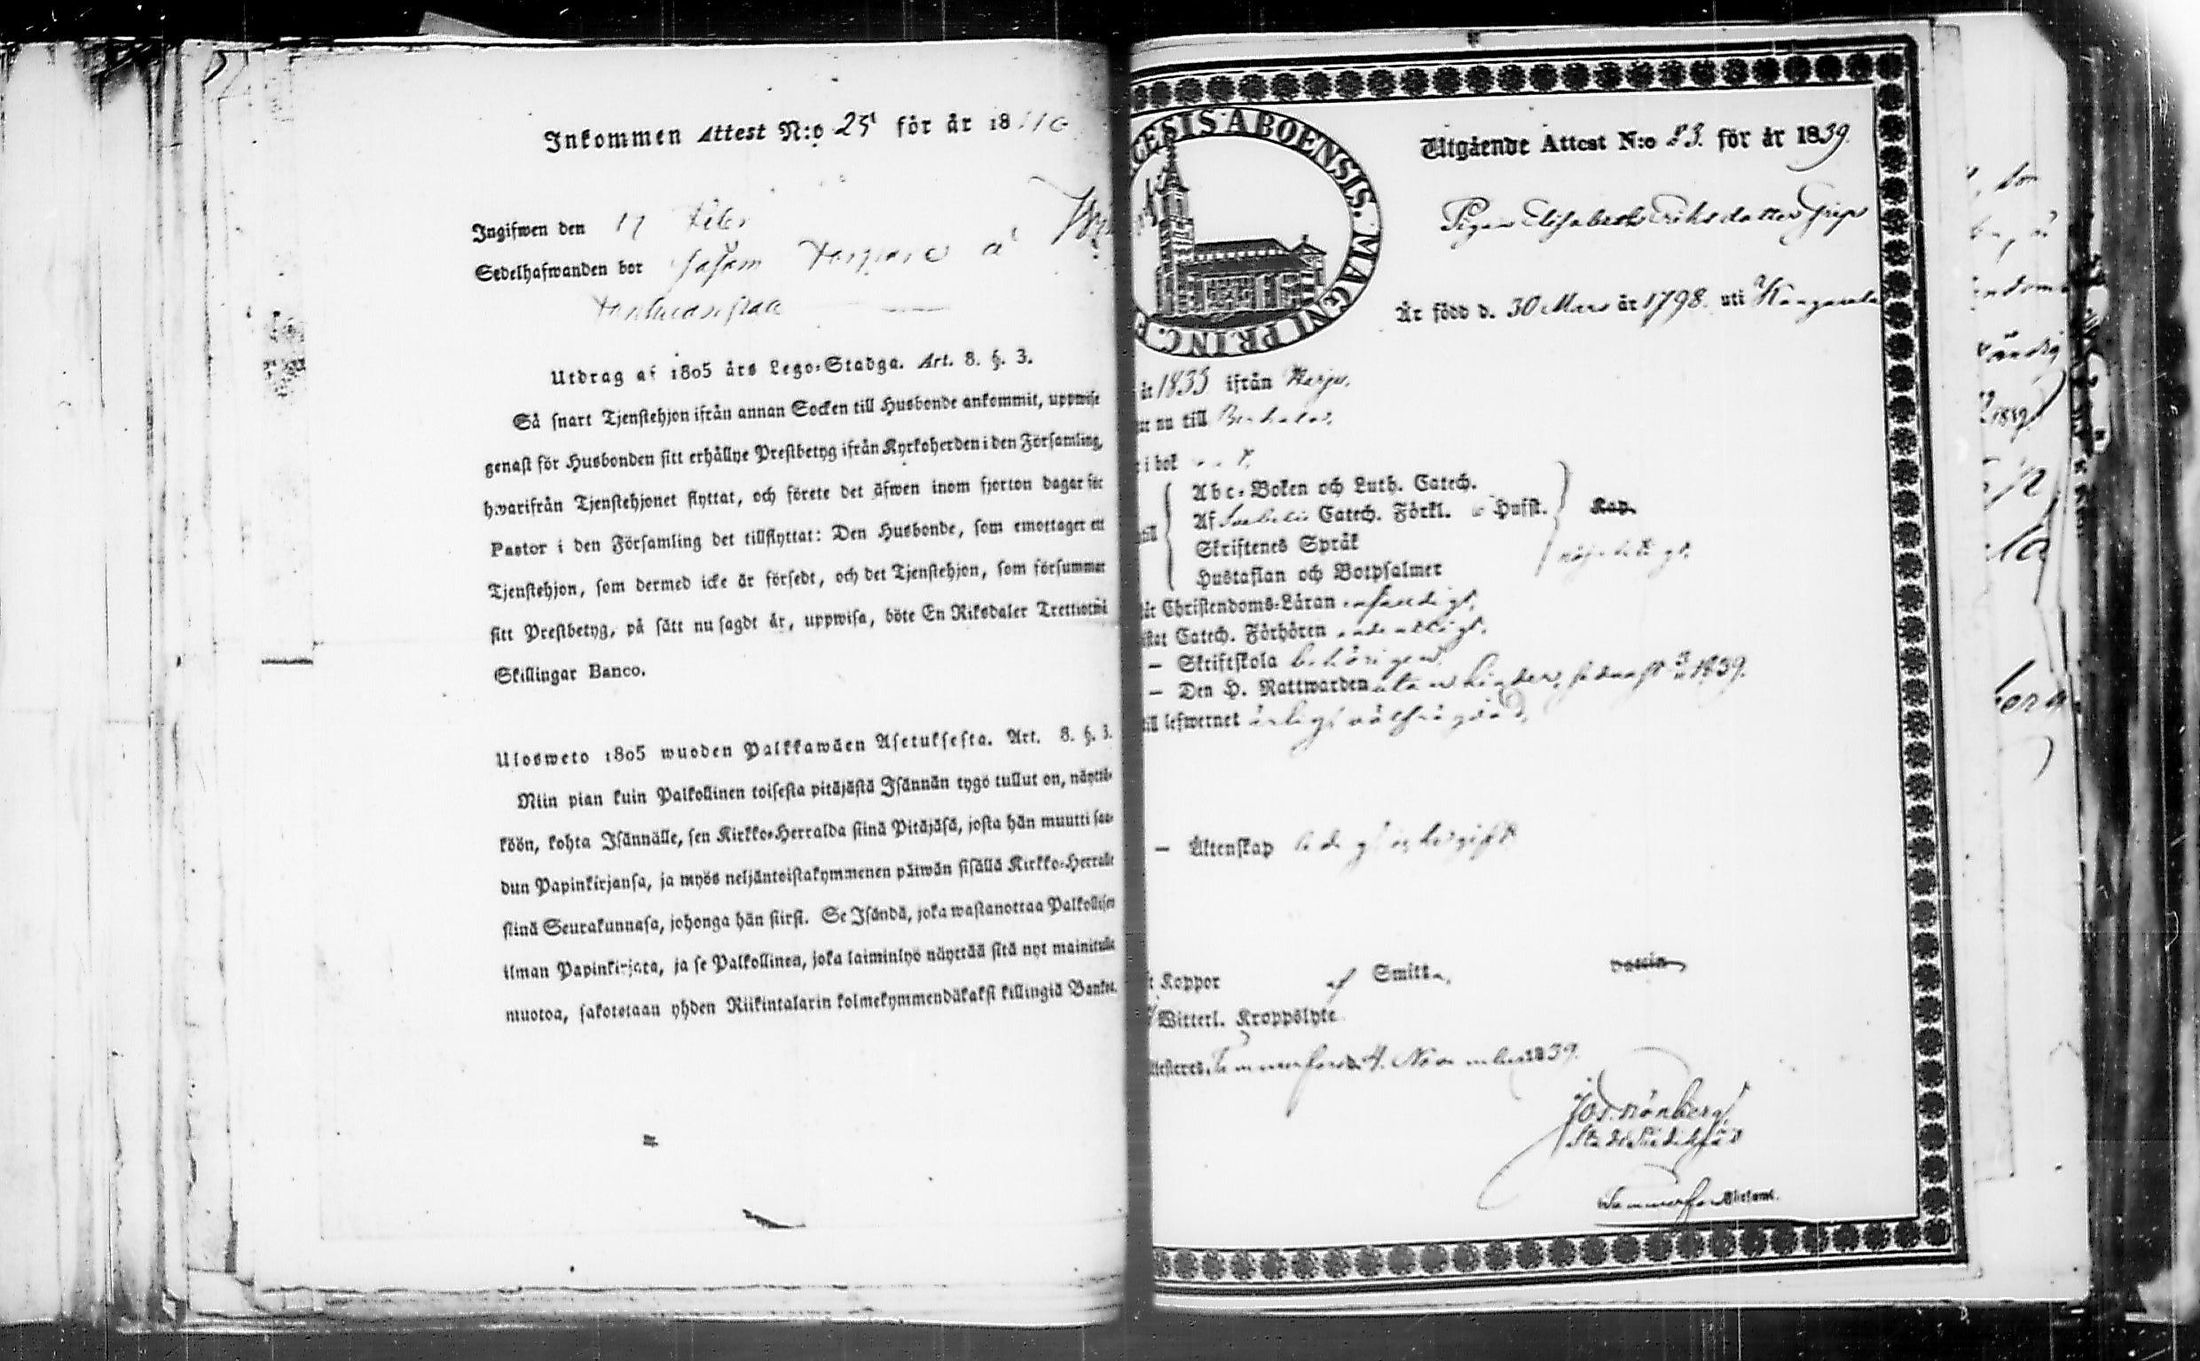 Inkommen Attest N:o 25 för år 18
Ingifwen den 17 Febr
Sedelhafwanden bor
Utdrag af 1805 års Lego-Stadga. Art. 8. §. 3.
Så snart Tjenstehjon ifrån annan Socken till Husbonde ankommit, uppwise
genast för Husbonden sitt erhållne Prestbetyg ifrån Kyrkoherden i den Församling,
hwarifrån Tjenstehjonet flyttat, och förete det äfwen inom fjorton dagar för
Pastor i den Församling det tillflyttat: Den Husbonde, som emottager ett
Tjenstehjon, som dermed icke är försedt, och det Tjenstehjon, som försummar
sitt Prestbetyg, på sätt nu sagdt är, uppwisa, böte En Riksdaler Trettiotwå
Skillingar Banco.
Ulosweto 1805 wuoden Palkkawäen Asetuksesta. Art. 8. §. 3.
Niin pian kuin Palkollinen toisesta pitäjästä Isännän tygö tullut on, näyttä-
köön, kohta Isännälle, sen Kirkko-Herralda siinä Pitäjäsä, josta hän muutti saa-
dun Papinkirjansa, ja myös neljäntoistakymmenen päiwän sisällä Kirkko-Herralle
siinä Seurakunnasa, johonga hän siirsi. Se Isändä, joka wastanottaa Palkollisen
ilman Papinkirjata, ja se Palkollinen, joka laiminlyö näyttää sitä nyt mainitulla
muotoa, sakotetaan yhden Riikintalarin kolmekymmendäkaksi killingiä Bankos.
GESIS ABOENSIS. MAGNI PRINC. F
Utgående Attest N:o 83. för år 1839.
Pigan Elisabeth Eriksdotter Grip
Är född d. 30 Mars år 1798. uti Kangasala
år 1833 ifrån Harju.
nu till Birkala.
i bok
Abc-Boken och Luth. Catech.
Af Svebelii Catech. Förkl. o Husst. Kap.
till Skriftenes Språk nöjaktigt.
Hustaflan och Botpsalmer
Christendoms-Läran
Catech. Förhören ordentligt.
— Skriftskola behörigen
— Den H. Nattwarden utan hinder, sednast 1839.
till lefwernet
— Äktenskap ledig
Koppor af Smitta. vaccin
Witterl. Kroppslyte
Tammerfors d. 4. November 1839.
Jos. Grönberg
Stads Predikant
Tammerfors